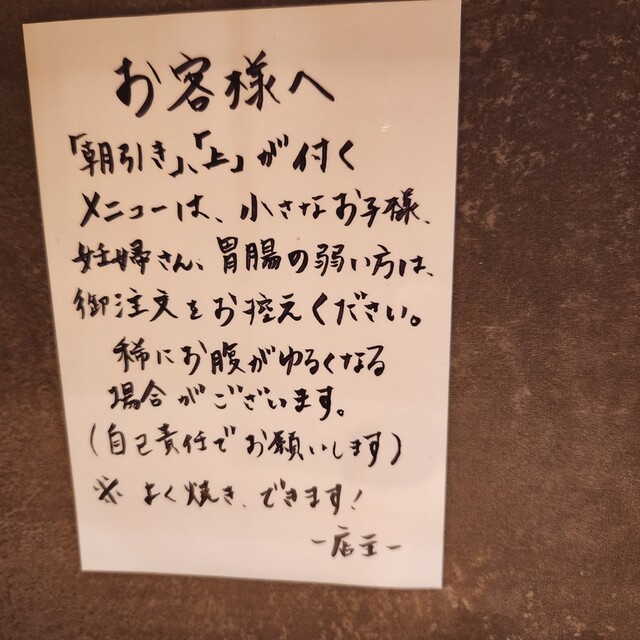 お客様へ
「朝引き」、「上」が付く
メニューは、小さなお子様、
妊婦さん、胃腸の弱い方は、
御注文をお控えください。
稀にお腹がゆるくなる
場合がございます。
(自己責任でお願いします)
※ よく焼き、できます!
－店主－